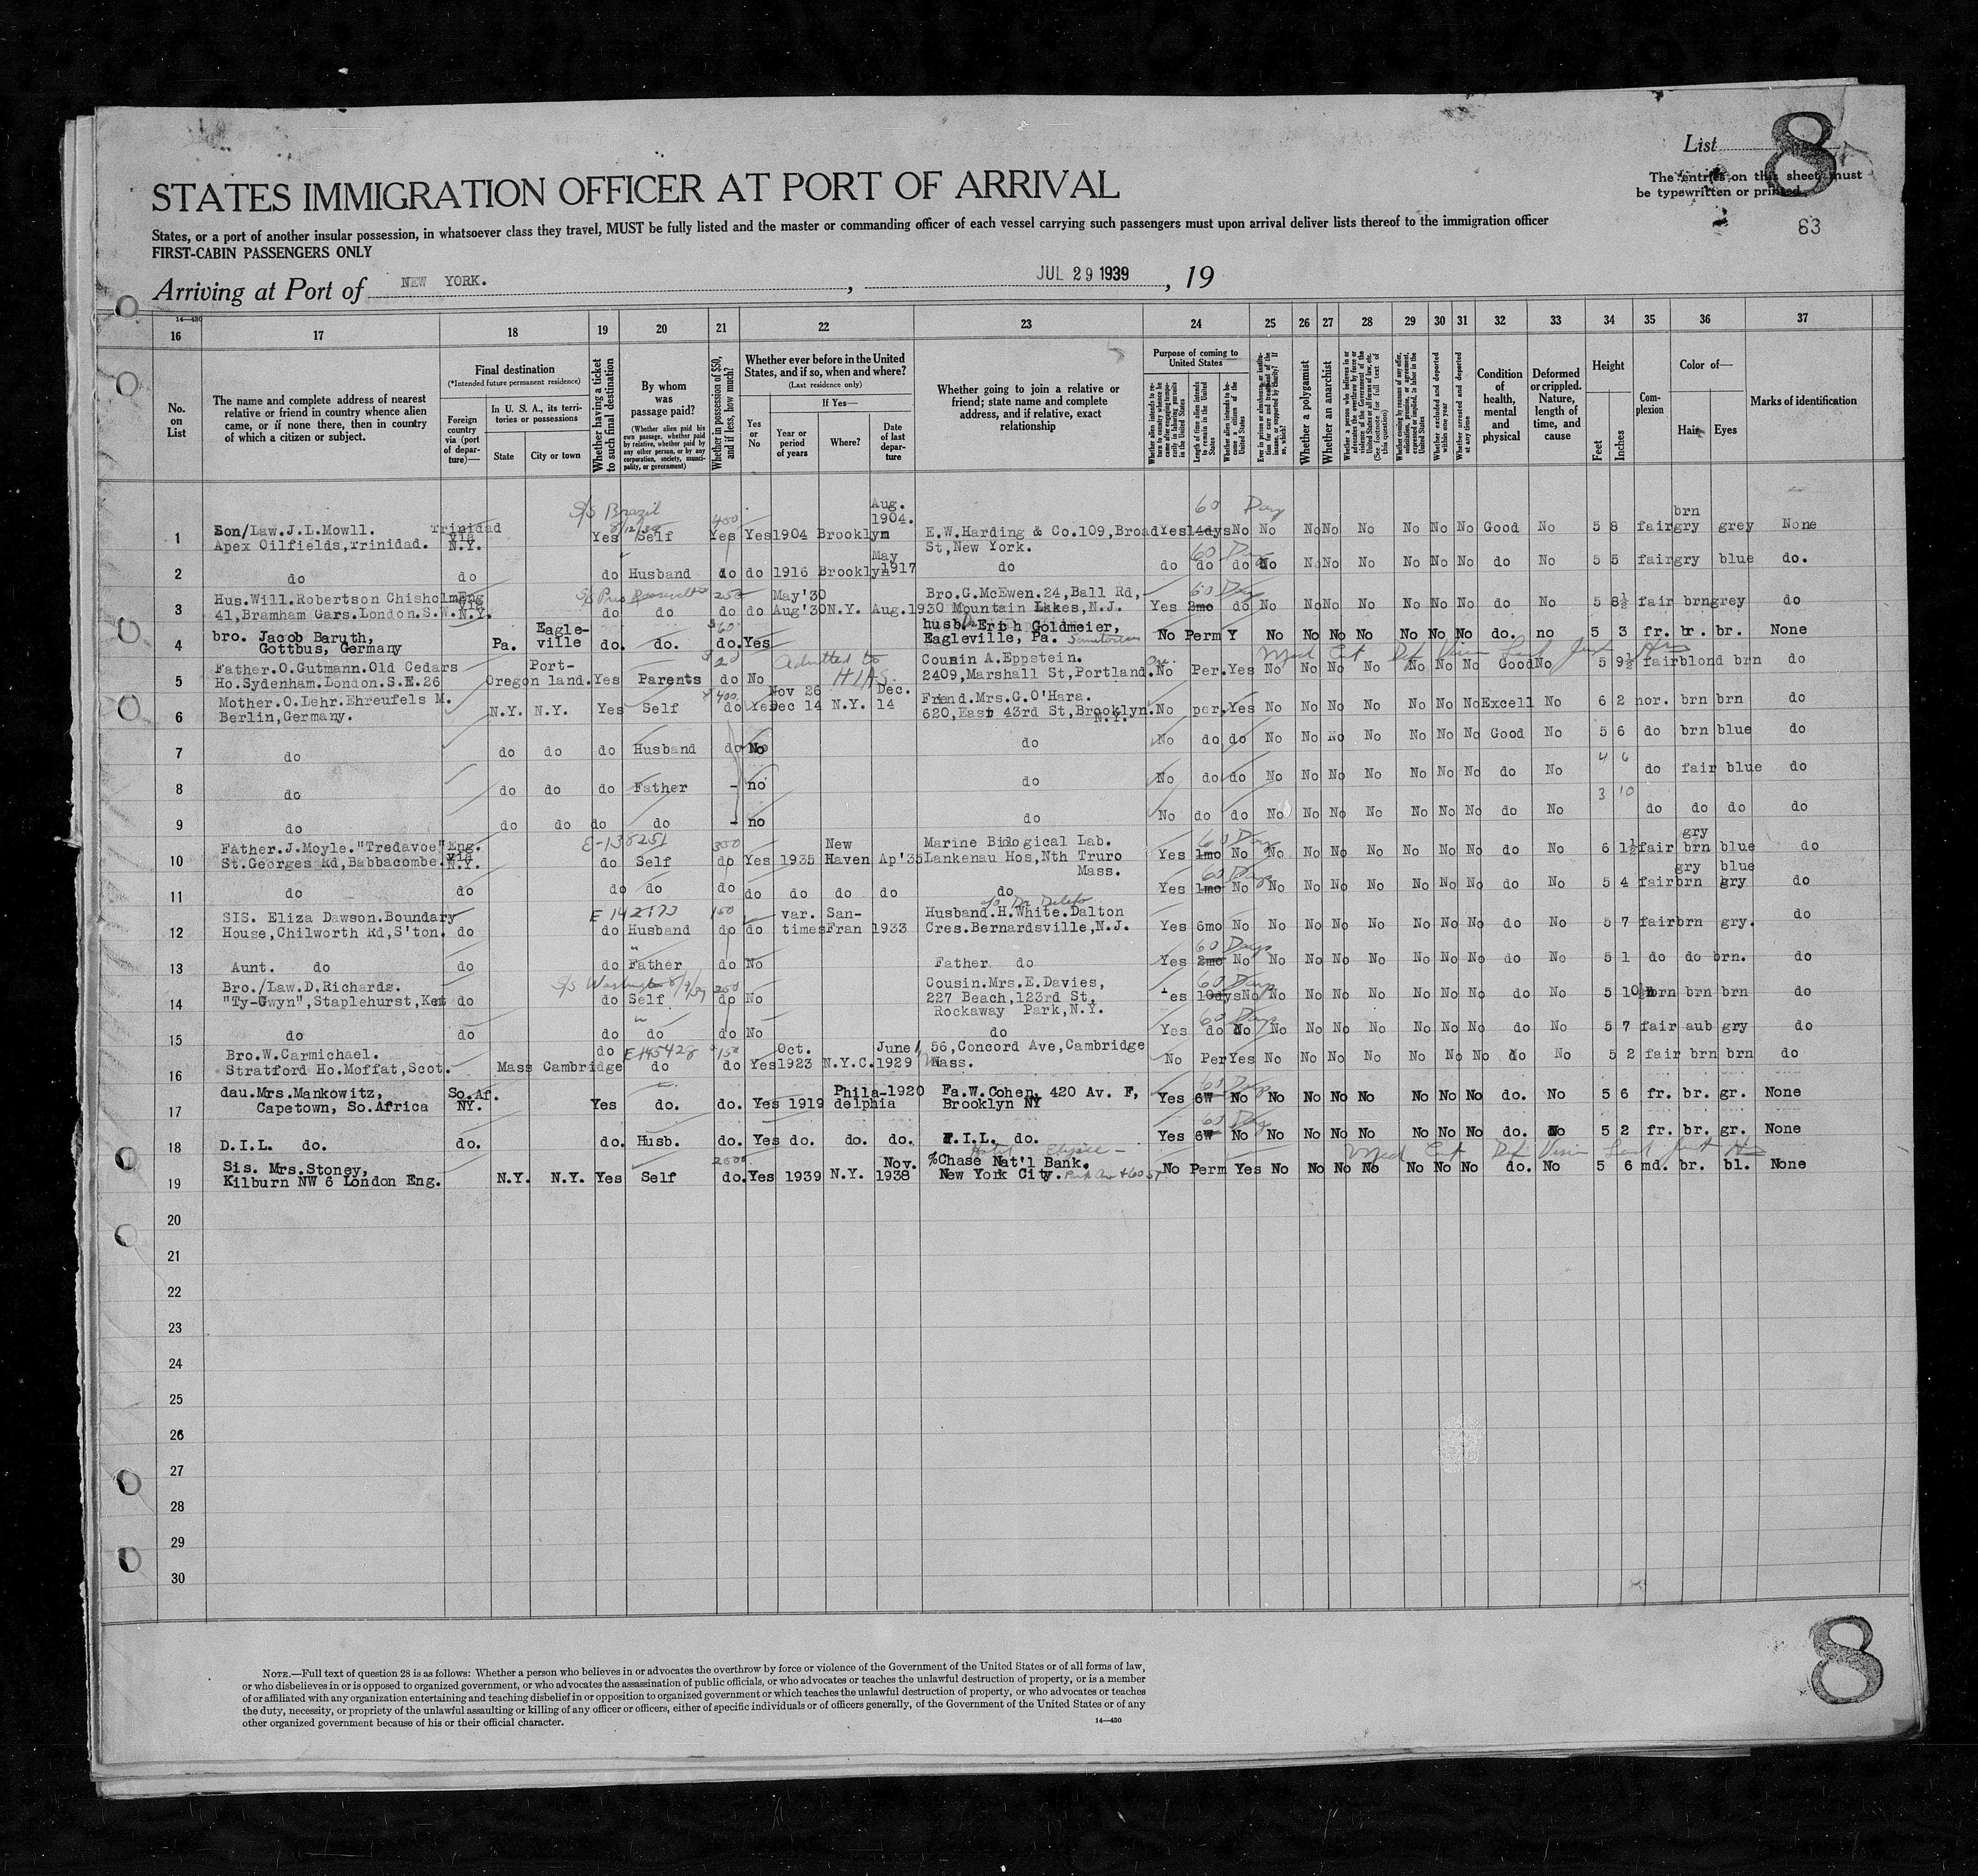 List 8
The entries on this sheet must
be typewritten or printed
63
STATES IMMIGRATION OFFICER AT PORT OF ARRIVAL
States, or a port of another insular possession, in whatsoever class they travel, MUST be fully listed and the master or commanding officer of each vessel carrying such passengers must upon arrival deliver lists thereof to the immigration officer
FIRST-CABIN PASSENGERS ONLY
Arriving at Port of NEW YORK. , JUL 29 1939 , 19
14—430
16 17 18 19 20 21 22 23 24 25 26 27 28 29 30 31 32 33 34 35 36 37
No. on List
The name and complete address of nearest relative or friend in country whence alien came, or if none there, then in country of which a citizen or subject.
Final destination
(*Intended future permanent residence)
Foreign country via (port of departure)—
In U. S. A., its territories or possessions
State
City or town
Whether having a ticket to such final destination
By whom was passage paid?
(Whether alien paid his own passage, whether paid by relative, whether paid by any other person, or by any corporation, society, municipality, or government)
Whether in possession of $50, and if less, how much?
Whether ever before in the United States, and if so, when and where?
(Last residence only)
Yes or No
If Yes—
Year or period of years
Where?
Date of last departure
Whether going to join a relative or friend; state name and complete address, and if relative, exact relationship
Purpose of coming to United States
Length of time alien intends to remain in the United States
Whether alien intends to become a citizen of the United States
Whether a polygamist
Whether an anarchist
(See footnote for full text of this question)
Whether excluded and deported within one year
Whether arrested and deported at any time
Condition of health, mental and physical
Deformed or crippled. Nature, length of time, and cause
Height
Feet
Inches
Complexion
Color of—
Hair
Eyes
Marks of identification
S/S Brazil 400 Aug. 1904. 60 Day brn
1 Son/Law.J.L.Mowll. Apex Oilfields,Trinidad. Trinidad via N.Y. Yes Self Yes Yes 1904 Brooklyn E.W.Harding & Co.109,Broad St,New York. Yes 14dys No No No No No No No No Good No 5 8 fair gry grey None
2 do do do Husband do do 1916 Brooklyn May 1917 do do do do No No No No No No No do No 5 5 fair gry blue do.
3 Hus.Will.Robertson Chisholm 41,Bramham Gars.London.S.W. Eng via N.Y. do do do do May'30 Aug'30 N.Y. Aug.1930 Bro.G.McEwen.24,Ball Rd, Mountain Lakes,N.J. Yes 2mo do No No No No No No No do No 5 8½ fair brn grey do
4 bro. Jacob Baruth, Gottbus, Germany Pa. Eagleville do. do. do. Yes husb. Erich Goldmeier, Eagleville, Pa. Sanitorium No Perm Y No No No No No No No do. no 5 3 fr. br. br. None
5 Father.O.Gutmann.Old Cedars Ho.Sydenham.London.S.E.26 Oregon Portland. Yes Parents do No Admitted to HIAS Cousin A.Eppstein. 2409,Marshall St,Portland. No Per. Yes No No No No No No No Good No 5 9½ fair blond brn do
6 Mother.O.Lehr.Ehreufels M. Berlin,Germany. N.Y. N.Y. Yes Self 400 do Yes Nov 26 Dec 14 N.Y. Dec. 14 Friend.Mrs.G.O'Hara. 620,East 43rd St,Brooklyn. N.Y. No per. Yes No No No No No No No Excell No 6 2 nor. brn brn do
7 do do do do Husband do No do No do do No No No No No No No Good No 5 6 do brn blue do
8 do do do do Father - no do No do do No No No No No No No do No 4 6 do fair blue do
9 do do do do do - no do No do do No No No No No No No do No 3 10 do do do do
10 Father.J.Moyle."Tredavoe" St.Georges Rd,Babbacombe. Eng. via N.Y. do E-138251 Self 300 do Yes 1935 New Haven Ap'35 Marine Biological Lab. Lankenau Hos,Nth Truro Mass. Yes 1mo 60 Days No No No No No No No No do No 6 1½ fair gry brn blue do
11 do do do do do do do do do do Yes 1mo 60 Days No No No No No No No No do No 5 4 fair gry brn blue gry do
12 SIS. Eliza Dawson.Boundary House,Chilworth Rd,S'ton. do do Husband 150 do do var. times San-Fran 1933 Husband.H.White.Dalton Cres.Bernardsville,N.J. Yes 6mo No No No No No No No No do No 5 7 fair brn gry. do
13 Aunt. do do do Father do No Father do Yes 2mo 60 Days No No No No No No No No do No 5 1 do do brn. do
14 Bro./Law.D.Richards. "Ty-Gwyn",Staplehurst,Kent do S/S Washington do Self 250 do No Cousin.Mrs.E.Davies, 227 Beach,123rd St, Rockaway Park,N.Y. Yes 10dys 60 Days No No No No No No No No do No 5 10½ brn brn brn do
15 do do do do do No do Yes do 60 Days do No No No No No No No do No 5 7 fair aub gry do
16 Bro.W.Carmichael. Stratford Ho.Moffat,Scot. Mass Cambridge do E145428 do 150 do Yes Oct. 1923 N.Y.C. June 1929 56,Concord Ave,Cambridge Mass. No Per Yes No No No No No No No do No 5 2 fair brn brn do
17 dau.Mrs.Mankowitz, Capetown, So.Africa So.Af. NY. Yes do. do. Yes 1919 Philadelphia 1920 Fa.W.Cohen, 420 Av. F, Brooklyn NY Yes 6W 60 Days No No No No No No No No do. No 5 6 fr. br. gr. None
18 D.I.L. do. do. do. Husb. do. Yes do. do. do. F.I.L. do. Yes 6W 60 Days No No No No No No No No do. No 5 2 fr. br. gr. None
19 Sis. Mrs.Stoney, Kilburn NW 6 London Eng. N.Y. N.Y. Yes Self do. Yes 1939 N.Y. Nov. 1938 Hotel Elysee - %Chase Nat'l Bank. New York City. No Perm Yes No No No No No No No do. No 5 6 md. br. bl. None
20
21
22
23
24
25
26
27
28
29
30
NOTE.—Full text of question 28 is as follows: Whether a person who believes in or advocates the overthrow by force or violence of the Government of the United States or of all forms of law,
or who disbelieves in or is opposed to organized government, or who advocates the assassination of public officials, or who advocates or teaches the unlawful destruction of property, or is a member
of or affiliated with any organization entertaining and teaching disbelief in or opposition to organized government or which teaches the unlawful destruction of property, or who advocates or teaches
the duty, necessity, or propriety of the unlawful assaulting or killing of any officer or officers, either of specific individuals or of officers generally, of the Government of the United States or of any
other organized government because of his or their official character.
14—430
8